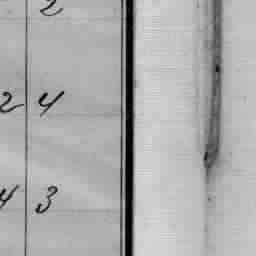 2
2 4
4 3